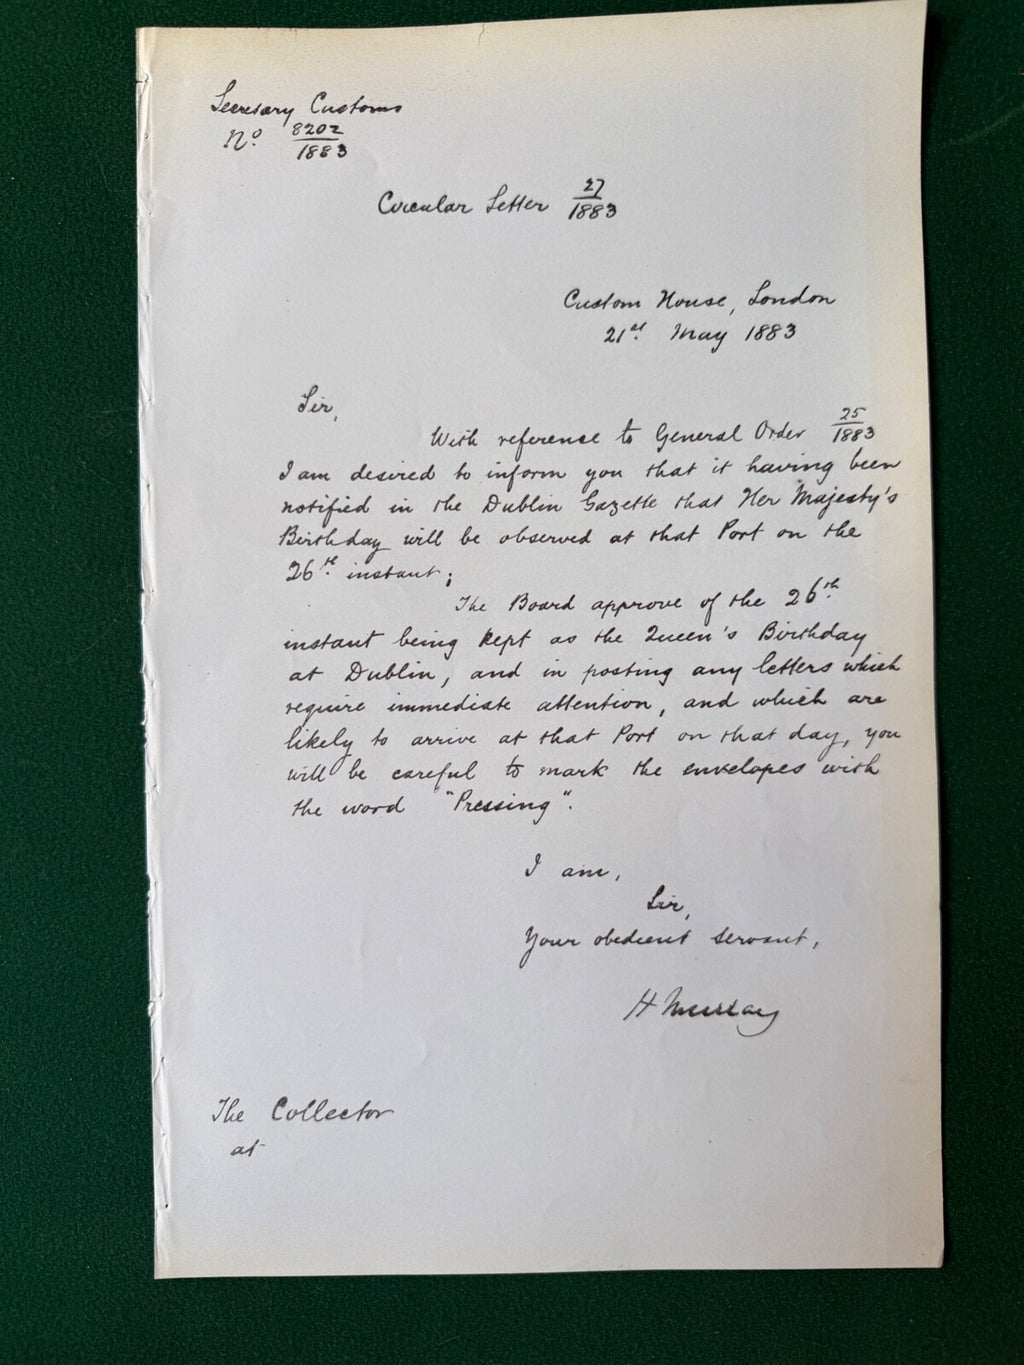 Secretary Customs
No. 8202/1883
Circular Letter 27/1883
Custom House, London
21st May 1883
Sir,
With reference to General Order 25/1883
I am desired to inform you that it having been
notified in the Dublin Gazette that Her Majesty's
Birthday will be observed at that Port on the
26th instant;
The Board approve of the 26th
instant being kept as the Queen's Birthday
at Dublin, and in posting any letters which
require immediate attention, and which are
likely to arrive at that Port on that day, you
will be careful to mark the envelopes with
the word "Pressing".
I am,
Sir,
Your obedient servant,
H Murray
The Collector
at